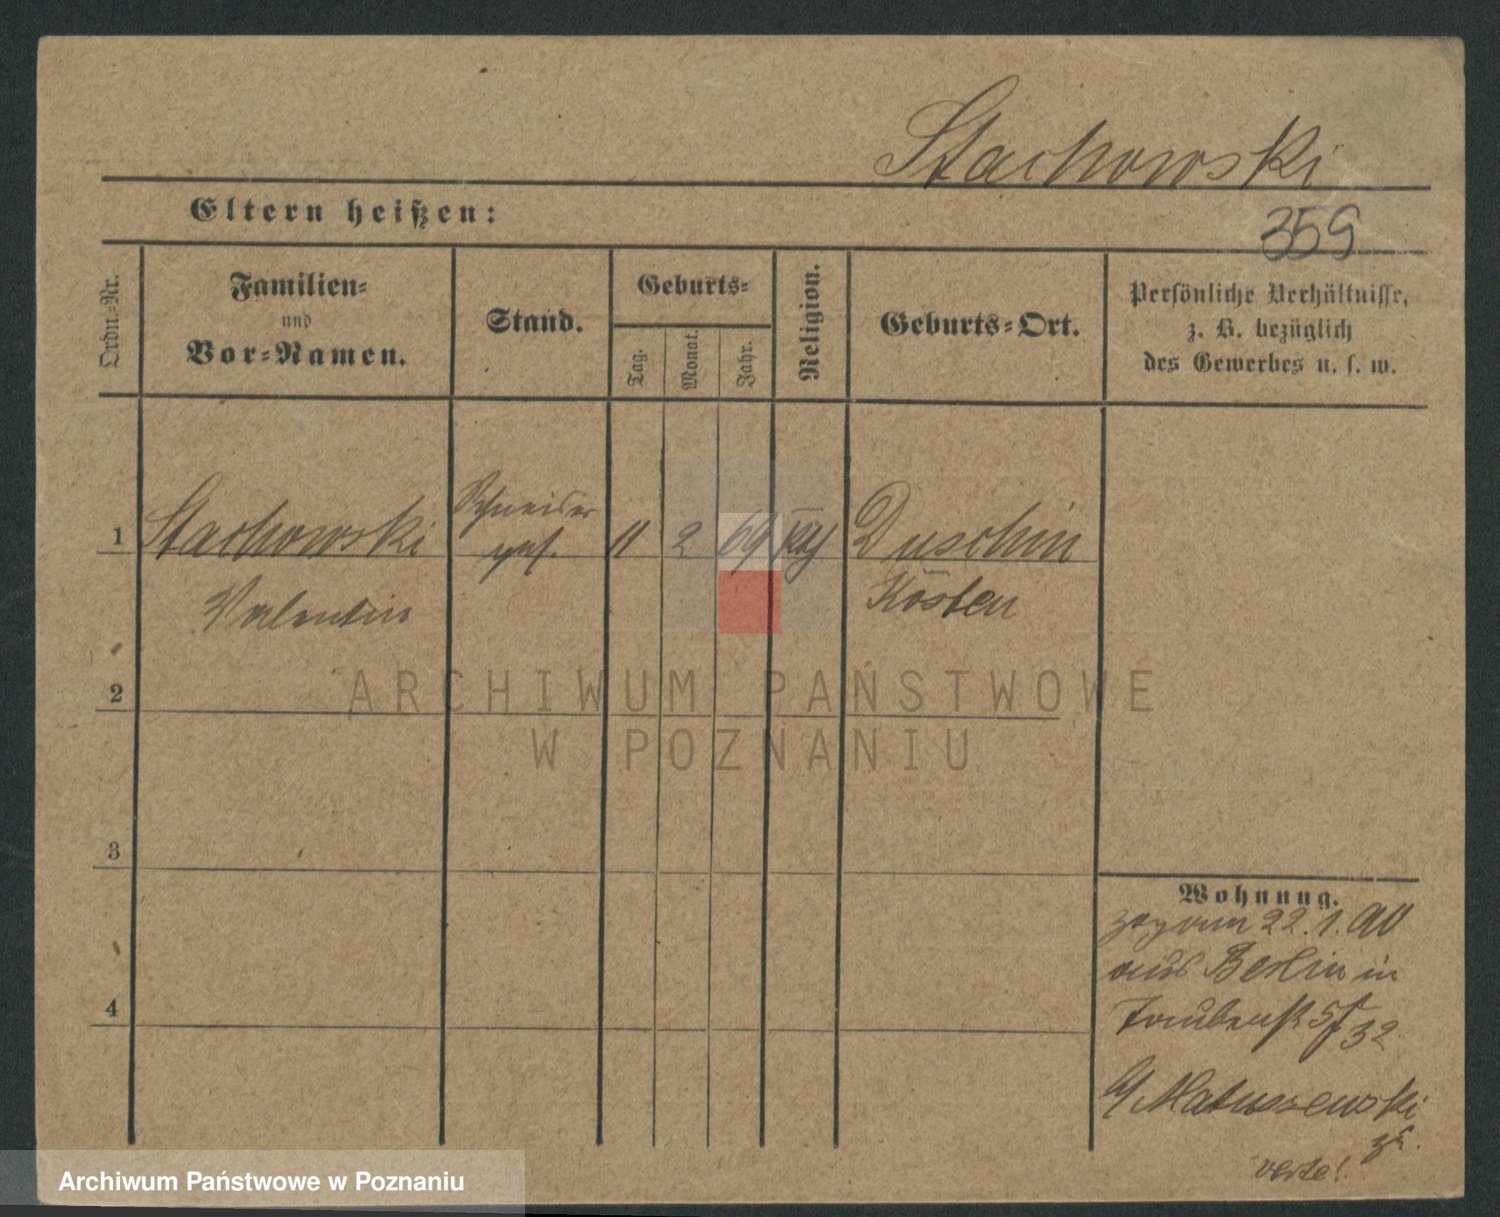 Stachowski
359
Eltern heißen:
Ordn.-Nr.
Familien-
und
Vor-Namen.
Stand.
Geburts-
Tag.
Monat.
Jahr.
Religion.
Geburts-Ort.
Persönliche Verhältnisse,
z. B. bezüglich
des Gewerbes u. s. w.
1 Stachowski Schneider 11 2 69 kth Duschin
Valentin
ges.
Kosten
2
ARCHIWUM PAŃSTWOWE
W POZNANIU
3
Wohnung.
zog am 22.1.90
aus Berlin in
Taubenstr 5
32
Matuszewski
4
verte!
Archiwum Państwowe w Poznaniu